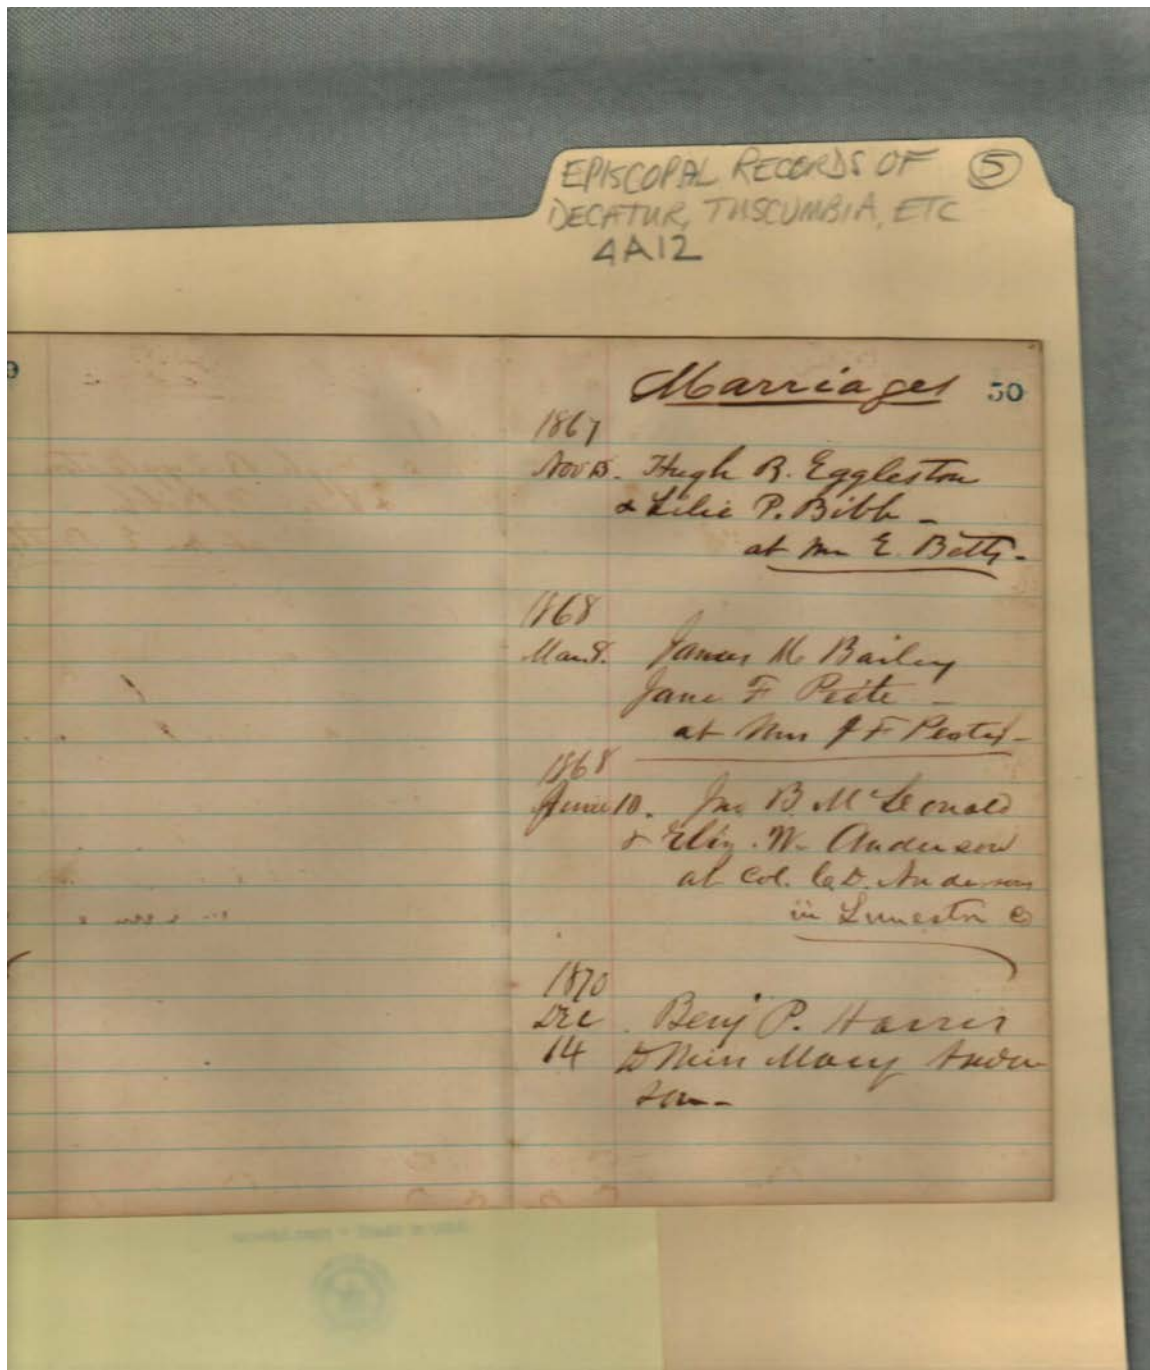 EPISCOPAL RECORDS OF 5
DECATUR, TUSCUMBIA, ETC
4A12
9
Marriages 50
1867
Nov 15. Hugh R. Eggleston
& Lilie P. Bibb -
at Mr E. Betts -
1868
Mar. 8. James M Bailey
Jane F Peete -
at Mrs J F Peetes -
1868
June 10. Jno B. McDonald
& Eliz. W. Anderson
at Col. C. D. Anderson
in Limestone Co
1870
Dec. Benj P. Harris
14 to Miss Mary Ander
son -